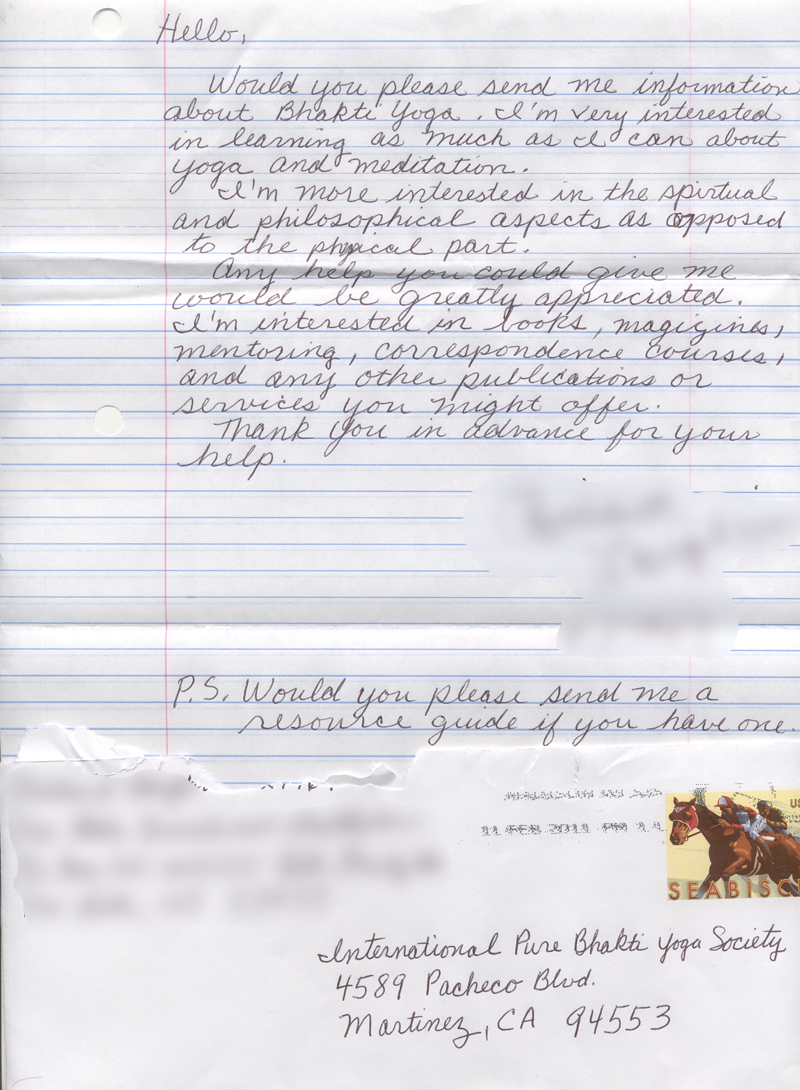 Hello,
Would you please send me information
about Bhakti Yoga. I'm very interested
in learning as much as I can about
yoga and meditation.
I'm more interested in the spirtual
and philosophical aspects as opposed
to the physical part.
Any help you could give me
would be greatly appreciated.
I'm interested in books, magizines,
mentoring, correspondence courses,
and any other publications or
services you might offer.
Thank you in advance for your
help.
P.S. Would you please send me a
resource guide if you have one.
11 FEB 2011 PM
US
SEABISC
International Pure Bhakti Yoga Society
4589 Pacheco Blvd.
Martinez, CA 94553